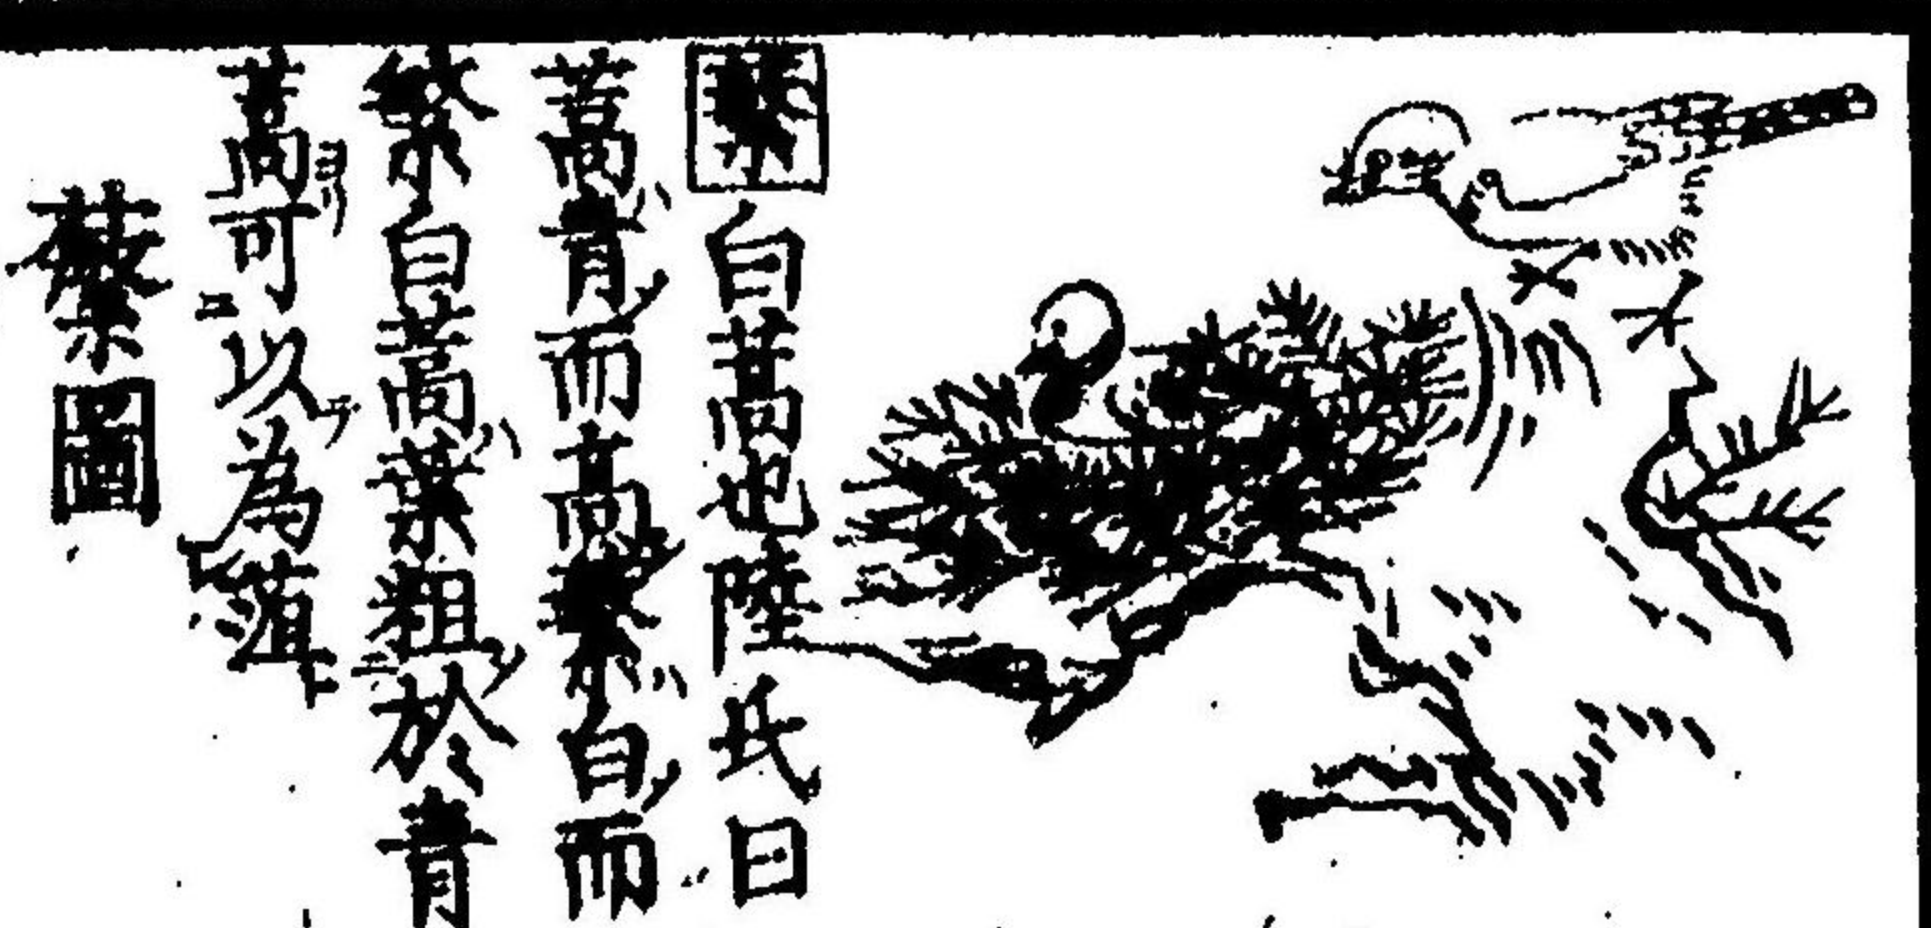 蘩白蒿也陸氏曰
蒿青而高蘩白而
繁白蒿葉粗於青
蒿可以為葅
蘩圖